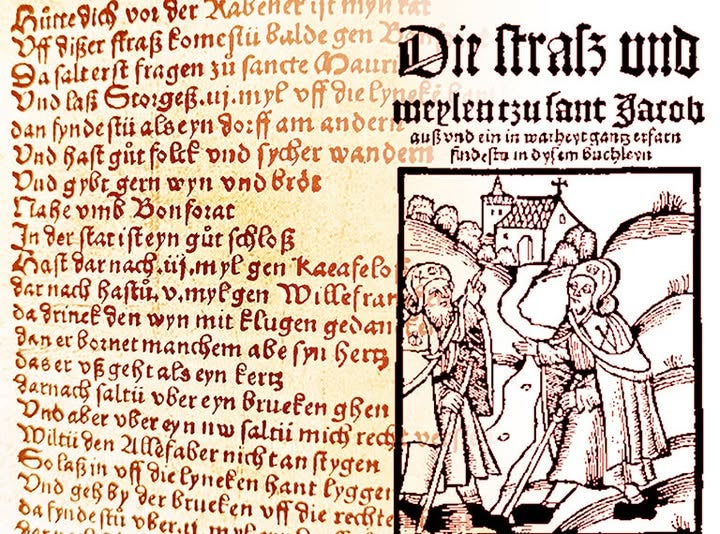 Hütte dich vor der Rabenet ist myn rat
Uff dißer straß komestü balde gen
Da salt erst fragen zü sancte Mauri
Und laß Storgeß .iij. myl vff die lyneke
dan fyndestü als eyn dorff am andern
Und hast güt folck vnd sycher wandern
Und gybt gern wyn vnd bröt
Nahe vmb Bonforat
In der stat ist eyn güt schloß
Hast dar nach .iij. myl gen Kacafelo
dar nach hastü .v. myl gen Willefran
da drinck den wyn mit klugen gedancken
dan er bornet manchem abe syn hertz
das er vß geht als eyn kertz
darnach saltü vber eyn brucken ghen
Und aber vber eyn nw saltü mich recht
Wiltü den Allefaber nicht an stygen
So laß in vff die lyneken hant lygge
Und geh by der brucken vff die rechte
da fyndestü
Die straß und
meylen tzu sant Jacob
auß vnd ein in warheyt gantz erfarn
findestu in dysem buchleyn